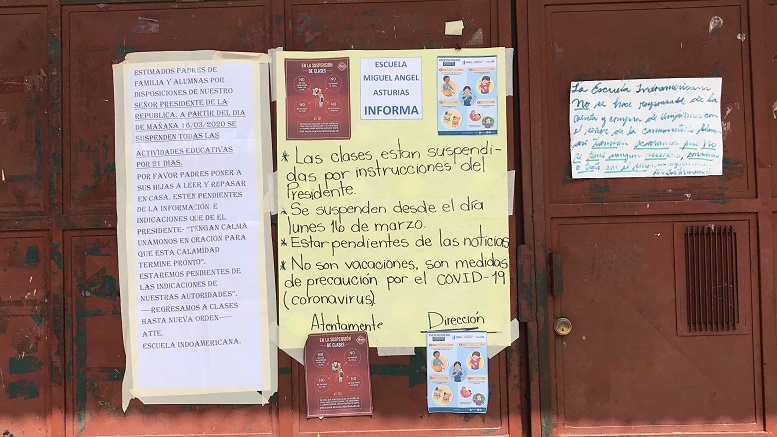 ESTIMADOS PADRES DE
FAMILIA Y ALUMNAS POR
DISPOSICIONES DE NUESTRO
SEÑOR PRESIDENTE DE LA
REPUBLICA. A PARTIR DEL DIA
DE MAÑANA 16/03/2020 SE
SUSPENDEN TODAS LAS
ACTIVIDADES EDUCATIVAS
POR 21 DIAS.
POR FAVOR PADRES PONER A
SUS HIJAS A LEER Y REPASAR
EN CASA. ESTEN PENDIENTES
DE LA INFORMACIÓN E
INDICACIONES QUE DE EL
PRESIDENTE- "TENGAN CALMA
UNAMONOS EN ORACION PARA
QUE ESTA CALAMIDAD
TERMINE PRONTO".
ESTAREMOS PENDIENTES DE
LAS INDICACIONES DE
NUESTRAS AUTORIDADES".
----REGRESAMOS A CLASES
HASTA NUEVA ORDEN-----
ATTE.
ESCUELA INDOAMERICANA.
EN LA SUSPENSIÓN
DE CLASES
NO
NO
NO
NO
ESCUELA
MIGUEL ANGEL
ASTURIAS
INFORMA
* Las clases, estan suspendi-
das por instrucciones del
Presidente.
* Se suspenden desde el día
lunes 16 de marzo.
* Estar pendientes de las noticias
* No son vacaciones, son medidas
de precaución por el COVID-19
(coronavirus).
Atentamente Dirección
EN LA SUSPENSIÓN
DE CLASES
NO
NO
NO
NO
La Escuela Indoamericana
No se hace responsable de la
venta y compra de uniformes con
el señor de la